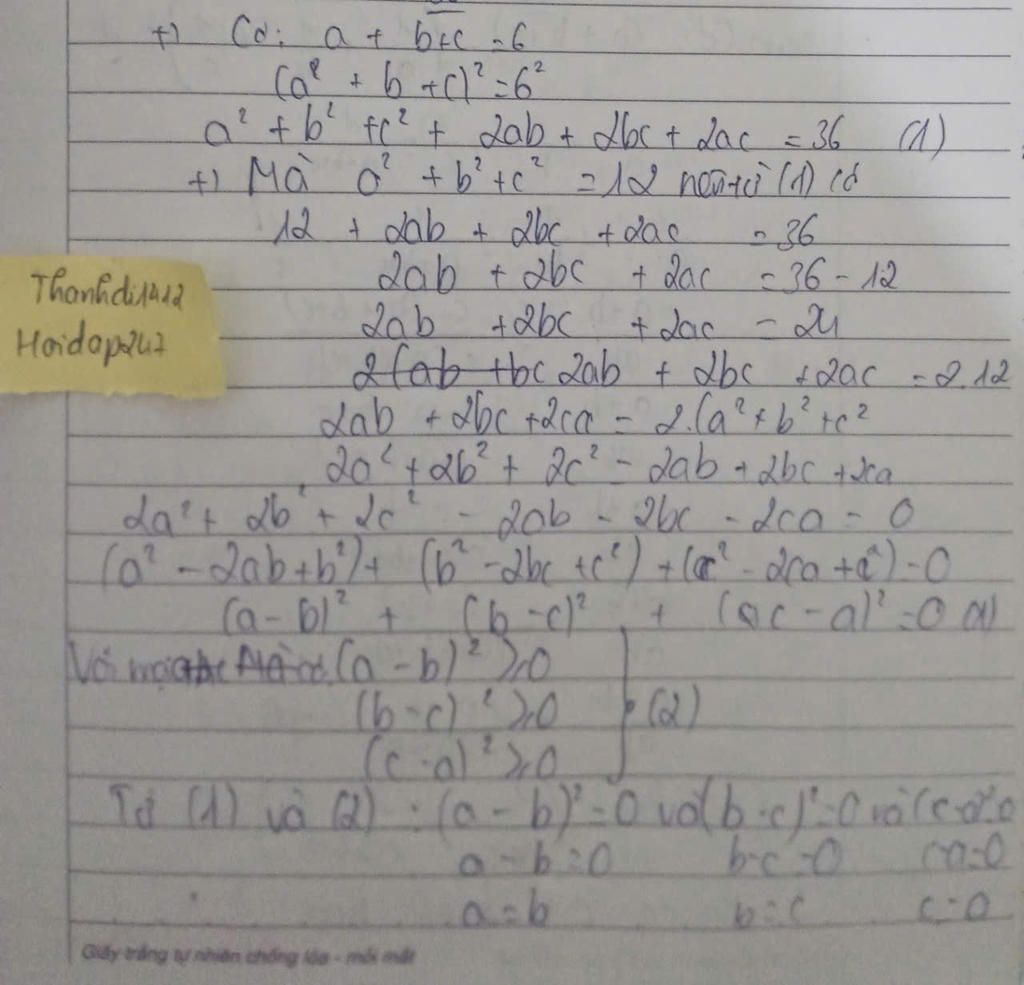 +) Có: a + b+c = 6
(a² + b + c)² = 6²
a² + b² + c² + 2ab + 2bc + 2ac = 36 (1)
+) Mà a² + b² + c² = 12 (1) có
12 + 2ab + 2bc + 2ac = 36
2ab + 2bc + 2ac = 36 - 12
Thanhdi1412
2ab + 2bc + 2ac = 24
Hoidap247
2(ab + bc 2ab + 2bc + 2ac = 2.12
2ab + 2bc + 2ca = 2.(a² + b² + c²
2a² + 2b² + 2c² = 2ab + 2bc + 2ca
2a² + 2b² + 2c² - 2ab - 2bc - 2ca = 0
(a² - 2ab + b²) + (b² - 2bc + c²) + (c² - 2ca + a²) = 0
(a - b)² + (b - c)² + (c - a)² = 0 (1)
Với mọi (a - b)² ≥ 0
(b - c)² ≥ 0 } (2)
(c - a)² ≥ 0
Từ (1) và (2) : (a - b)² = 0 và (b - c)² = 0 và (c-a)² = 0
a - b = 0 b-c = 0 c-a=0
a = b b = c c = a
Giấy trắng tự nhiên chống lóa - mỏi mắt